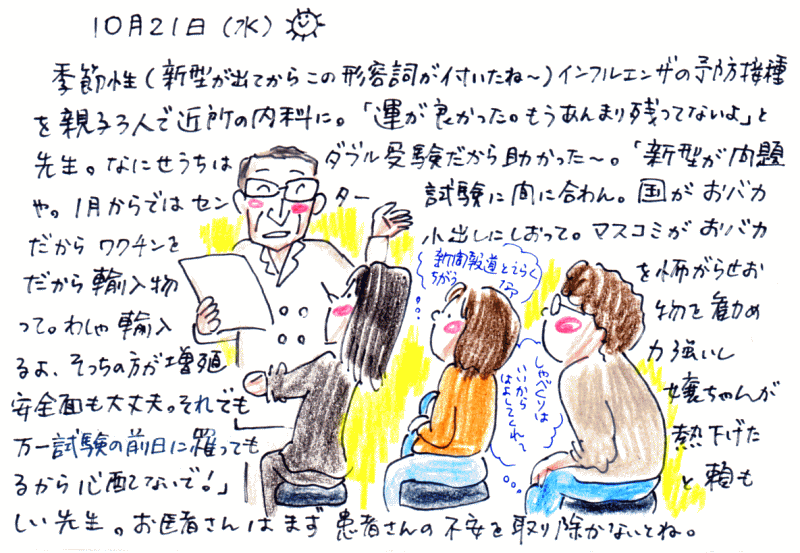 10月21日(水)
季節性(新型が出てからこの形容詞が付いたね〜)インフルエンザの予防接種
を親子3人で近所の内科に。「運が良かった。もうあんまり残ってないよ」と
先生。なにせうちは ダブル受験だから助かった〜。「新型が問題
や。1月からではセンター 試験に間に合わん。国がおバカ
だからワクチンを 小出しにしおって。マスコミがおバカ
だから輸入物 を怖がらせお
って。わしゃ輸入 物を勧め
るよ、そっちの方が増殖 力強いし
安全面も大丈夫。それでも 嬢ちゃんが
万一試験の前日に罹っても 熱下げた
るから心配しないで!」 と頼も
しい先生。お医者さんはまず患者さんの不安を取り除かないとね。
新聞報道とえらく
ちがうなア…
しゃべくりは
いいから
はよしてくれ〜…